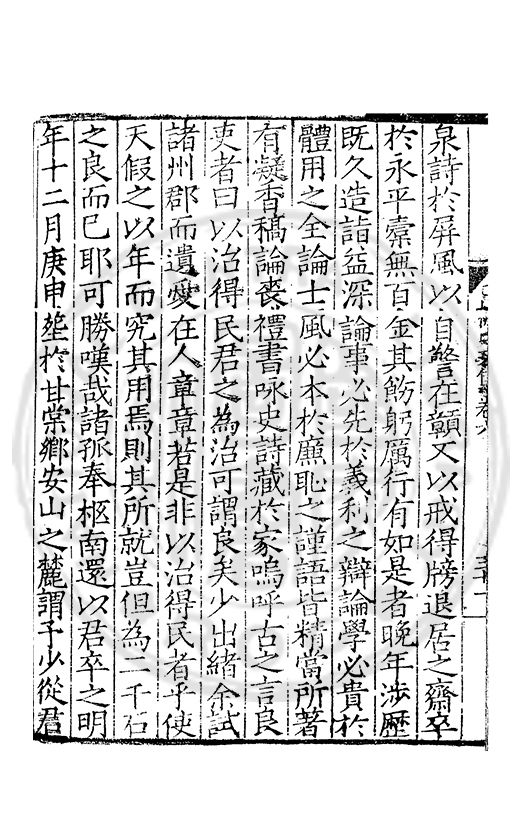 泉詩於屏風以自警在贛又以戒得牓退居之齋卒
於永平橐無百金其飭躬厲行有如是者晚年涉歷
既久造詣益深論事必先於義利之辯論學必貴於
體用之全論士風必本於廉恥之謹語皆精當所著
有凝香稿論喪禮書咏史詩藏於家嗚呼古之言良
吏者曰以治得民君之為治可謂良矣少出緒余試
諸州郡而遺愛在人章章若是非以治得民者乎使
天假之以年而究其用焉則其所就豈但為二千石
之良而已耶可勝嘆哉諸孤奉柩南還以君卒之明
年十二月庚申塟於甘棠鄉安山之麓謂予少從君